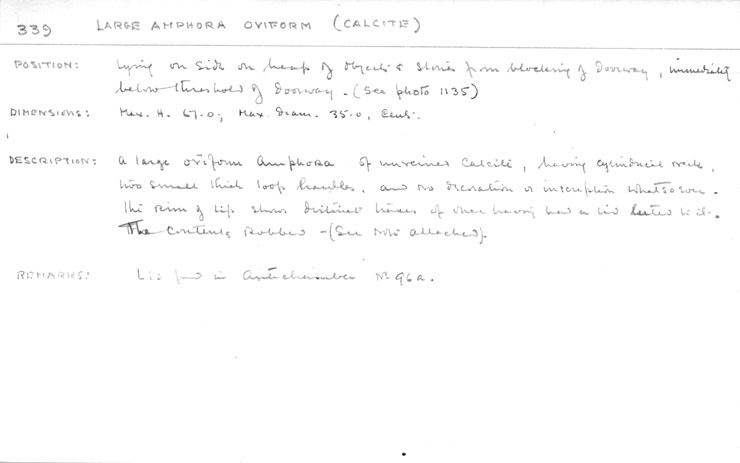 339 LARGE AMPHORA OVIFORM (CALCITE)
POSITION: Lying on side on heap of objects & stones from blocking of Doorway, immediately
below threshold of Doorway. (See photo 1135)
DIMENSIONS: Max. H. 67.0; Max. Diam. 35.0, Cent.
DESCRIPTION: A large oviform Amphora of unveined Calcite, having cylindrical neck,
two small thick loop handles, and no decoration or inscription whatsoever.
The rim of lip shows distinct traces of once having had a lid luted to it.
The Contents Robbed - (See Note attached).
REMARKS: Lid found in Antechamber No 96a.